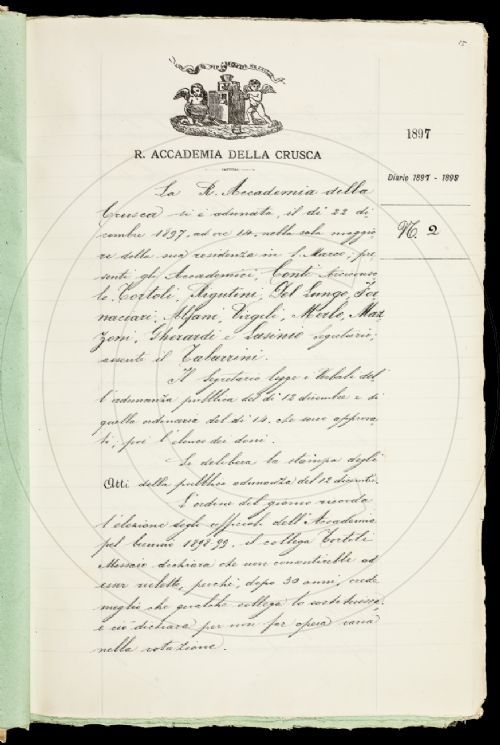 15
R. ACCADEMIA DELLA CRUSCA
1897
Diario 1897 - 1898
N. 2
La R. Accademia della
Crusca si è adunata, il dì 22 di
cembre 1897, ad ore 14, nella sala maggio
re della sua residenza in S. Marco; pre
senti gli Accademici, Conti Arciconso
lo, Tortoli, Rigutini, Del Lungo, For
naciari, Alfani, Virgili, Merlo, Maz
zoni, Gherardi e Lasinio segretario;
assente il Tabarrini.
Il Segretario legge i Verbali del
l'adunanza pubblica del dì 12 dicembre e di
quella ordinaria del dì 14, che sono approva
ti; poi l'elenco dei doni.
Si delibera la stampa degli
Atti della pubblica adunanza del 12 dicembre.
L'ordine del giorno ricorda
l'elezione degli officiali dell'Accademia
pel biennio 1898-99. Il collega Tortoli
Massaio dichiara che non consentirebbe ad
esser rieletto, perchè, dopo 30 anni, crede
meglio che qualche collega lo sostituisca;
e ciò dichiara per non far opera vana
nella votazione.